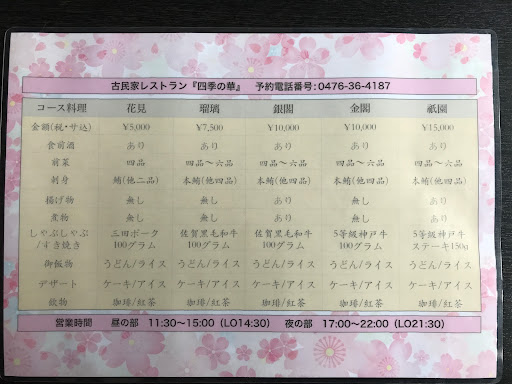 古民家レストラン『四季の華』 予約電話番号:0476-36-4187
コース料理 花見 瑠璃 銀閣 金閣 祇園
金額(税・サ込) ¥5,000 ¥7,500 ¥10,000 ¥10,000 ¥15,000
食前酒 あり あり あり あり あり
前菜 四品 四品～六品 四品～六品 四品～六品 四品～六品
刺身 鮪(他二品) 本鮪(他四品) 本鮪(他四品) 本鮪(他四品) 本鮪(他四品)
揚げ物 無し 無し あり 無し あり
煮物 無し 無し あり 無し あり
しゃぶしゃぶ 三田ポーク 佐賀黒毛和牛 佐賀黒毛和牛 5等級神戸牛 5等級神戸牛
/すき焼き 100グラム 100グラム 100グラム 100グラム ステーキ150g
御飯物 うどん/ライス うどん/ライス うどん/ライス うどん/ライス うどん/ライス
デザート ケーキ/アイス ケーキ/アイス ケーキ/アイス ケーキ/アイス ケーキ/アイス
飲物 珈琲/紅茶 珈琲/紅茶 珈琲/紅茶 珈琲/紅茶 珈琲/紅茶
営業時間 昼の部 11:30～15:00(LO14:30) 夜の部 17:00～22:00(LO21:30)